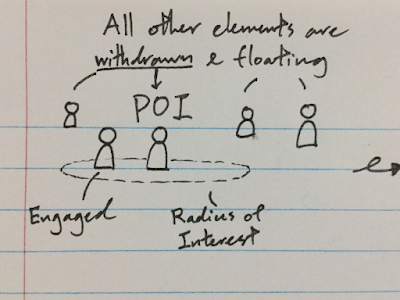 All other elements are
withdrawn & floating
POI
Engaged
Radius of
Interest